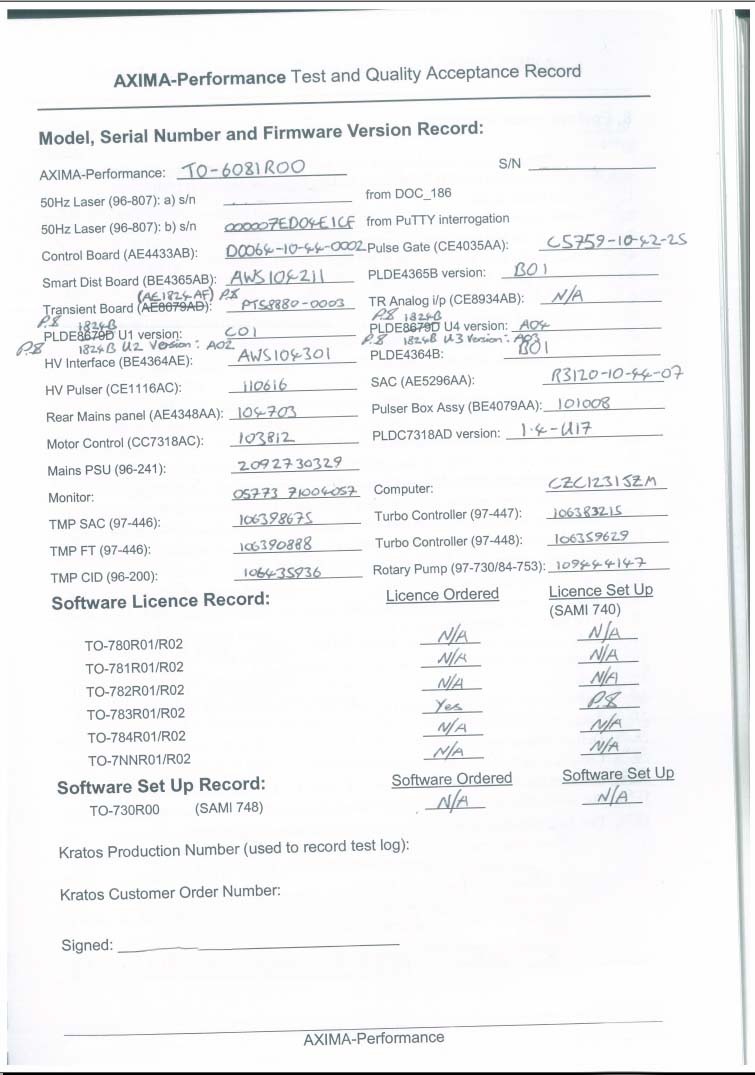 AXIMA-Performance Test and Quality Acceptance Record
Model, Serial Number and Firmware Version Record:
AXIMA-Performance: TO-6081R00 S/N
50Hz Laser (96-807): a) s/n from DOC_186
50Hz Laser (96-807): b) s/n 000007ED04E1CF from PuTTY interrogation
Control Board (AE4433AB): D0064-10-44-0002 Pulse Gate (CE4035AA): C5759-10-42-25
Smart Dist Board (BE4365AB): AWS104211 PLDE4365B version: B01
(AE1824AF) P.8
Transient Board (AE8679AD): PTS8880-0003 TR Analog i/p (CE8934AB): N/A
P.8 1824B P.8 1824B
PLDE8679D U1 version: C01 PLDE8679D U4 version: A04
P.8 1824B U2 Version: A02 P.8 1824B U3 Version: A03
HV Interface (BE4364AE): AWS104301 PLDE4364B: B01
HV Pulser (CE1116AC): 110616 SAC (AE5296AA): R3120-10-44-07
Rear Mains panel (AE4348AA): 104703 Pulser Box Assy (BE4079AA): 101008
Motor Control (CC7318AC): 103812 PLDC7318AD version: 1.4-U17
Mains PSU (96-241): 2092730329
Monitor: 05773 71004057 Computer: CZC1231JZM
TMP SAC (97-446): 106398675 Turbo Controller (97-447): 106383215
TMP FT (97-446): 106390888 Turbo Controller (97-448): 106359629
TMP CID (96-200): 106435936 Rotary Pump (97-730/84-753): 109444147
Software Licence Record: Licence Ordered Licence Set Up
(SAMI 740)
TO-780R01/R02 N/A N/A
TO-781R01/R02 N/A N/A
TO-782R01/R02 N/A N/A
TO-783R01/R02 Yes P.8
TO-784R01/R02 N/A N/A
TO-7NNR01/R02 N/A N/A
Software Set Up Record: Software Ordered Software Set Up
TO-730R00 (SAMI 748) N/A N/A
Kratos Production Number (used to record test log):
Kratos Customer Order Number:
Signed:
AXIMA-Performance